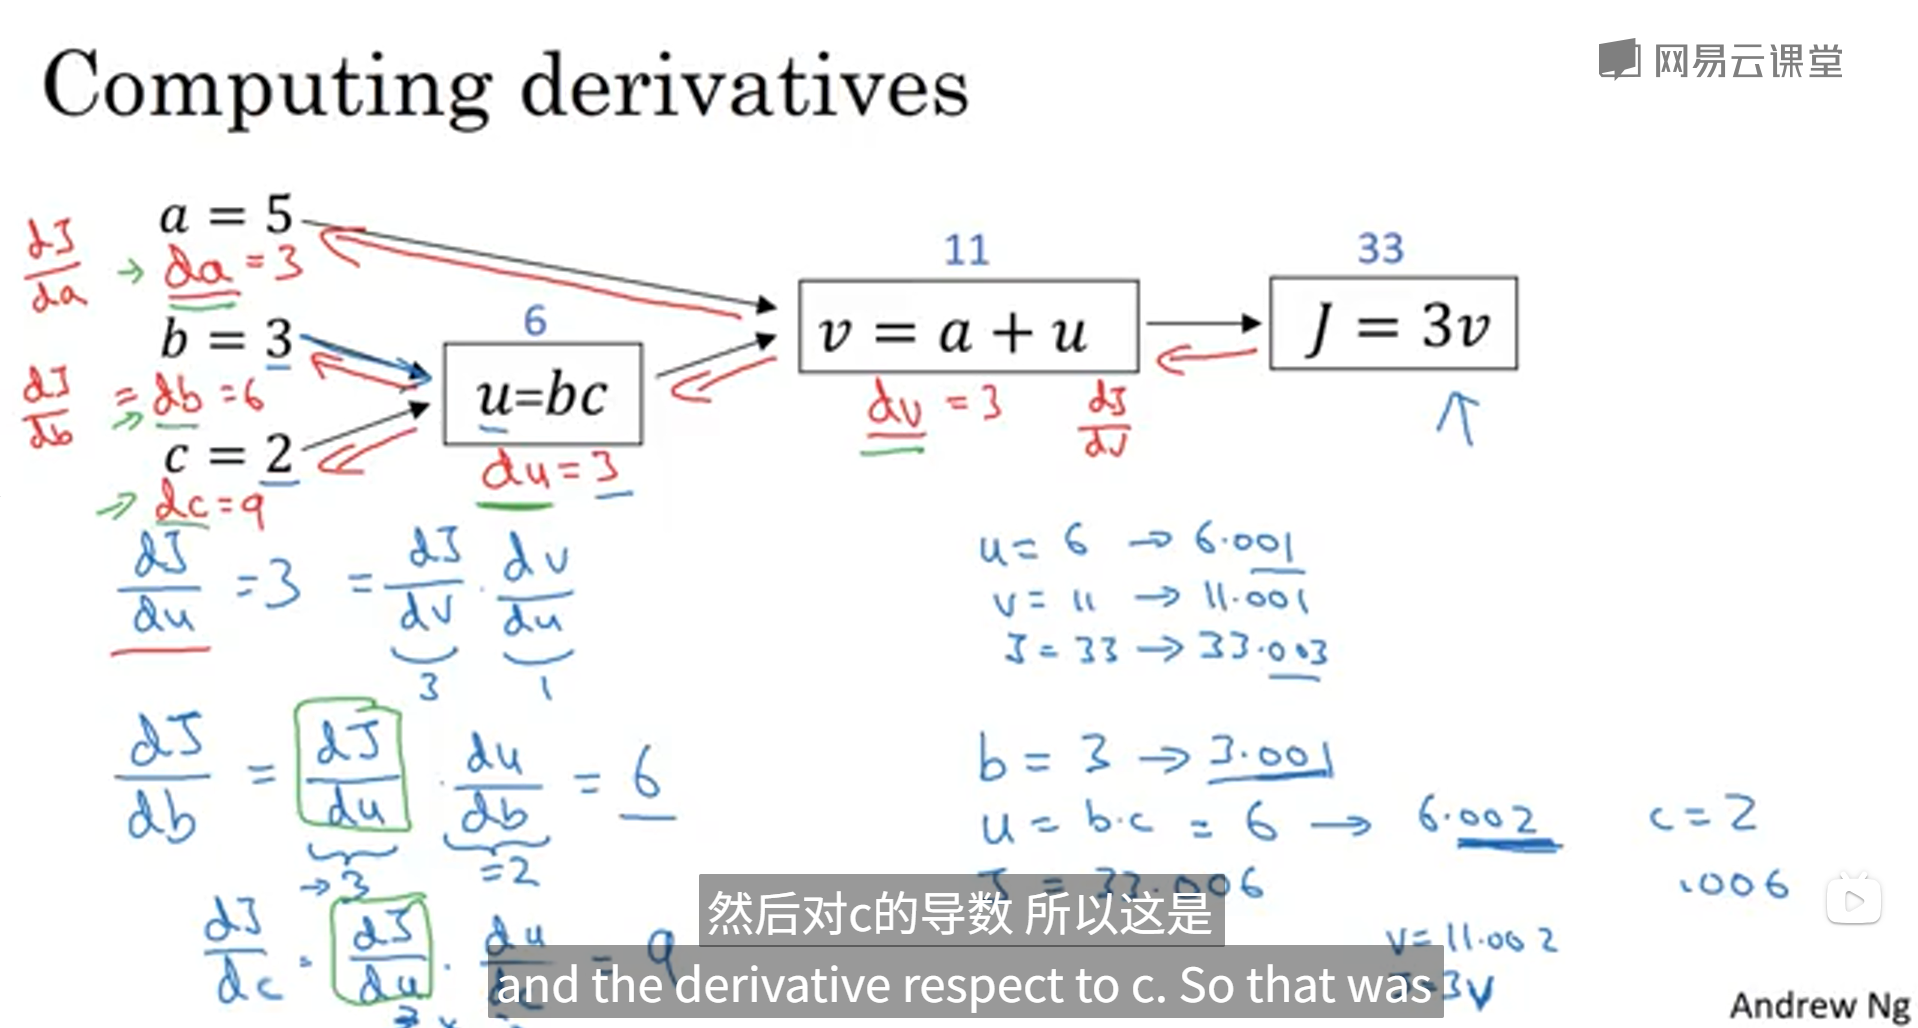 Computing derivatives
网易云课堂
a = 5
dJ/da → da = 3
b = 3
dJ/db = db = 6
c = 2
→ dc = 9
6
u=bc
du = 3
11
v = a + u
dv = 3 dJ/dv
33
J = 3v
dJ/du = 3 = dJ/dv · dv/du
3 1
dJ/db = dJ/du · du/db = 6
→ 3 = 2
dJ/dc = dJ/du · du/dc = 9
u = 6 → 6.001
v = 11 → 11.001
J = 33 → 33.003
b = 3 → 3.001
u = b·c = 6 → 6.002 c = 2
J = 33.006 .006
v = 11.002
J = 3v
然后对c的导数 所以这是
and the derivative respect to c. So that was
Andrew Ng